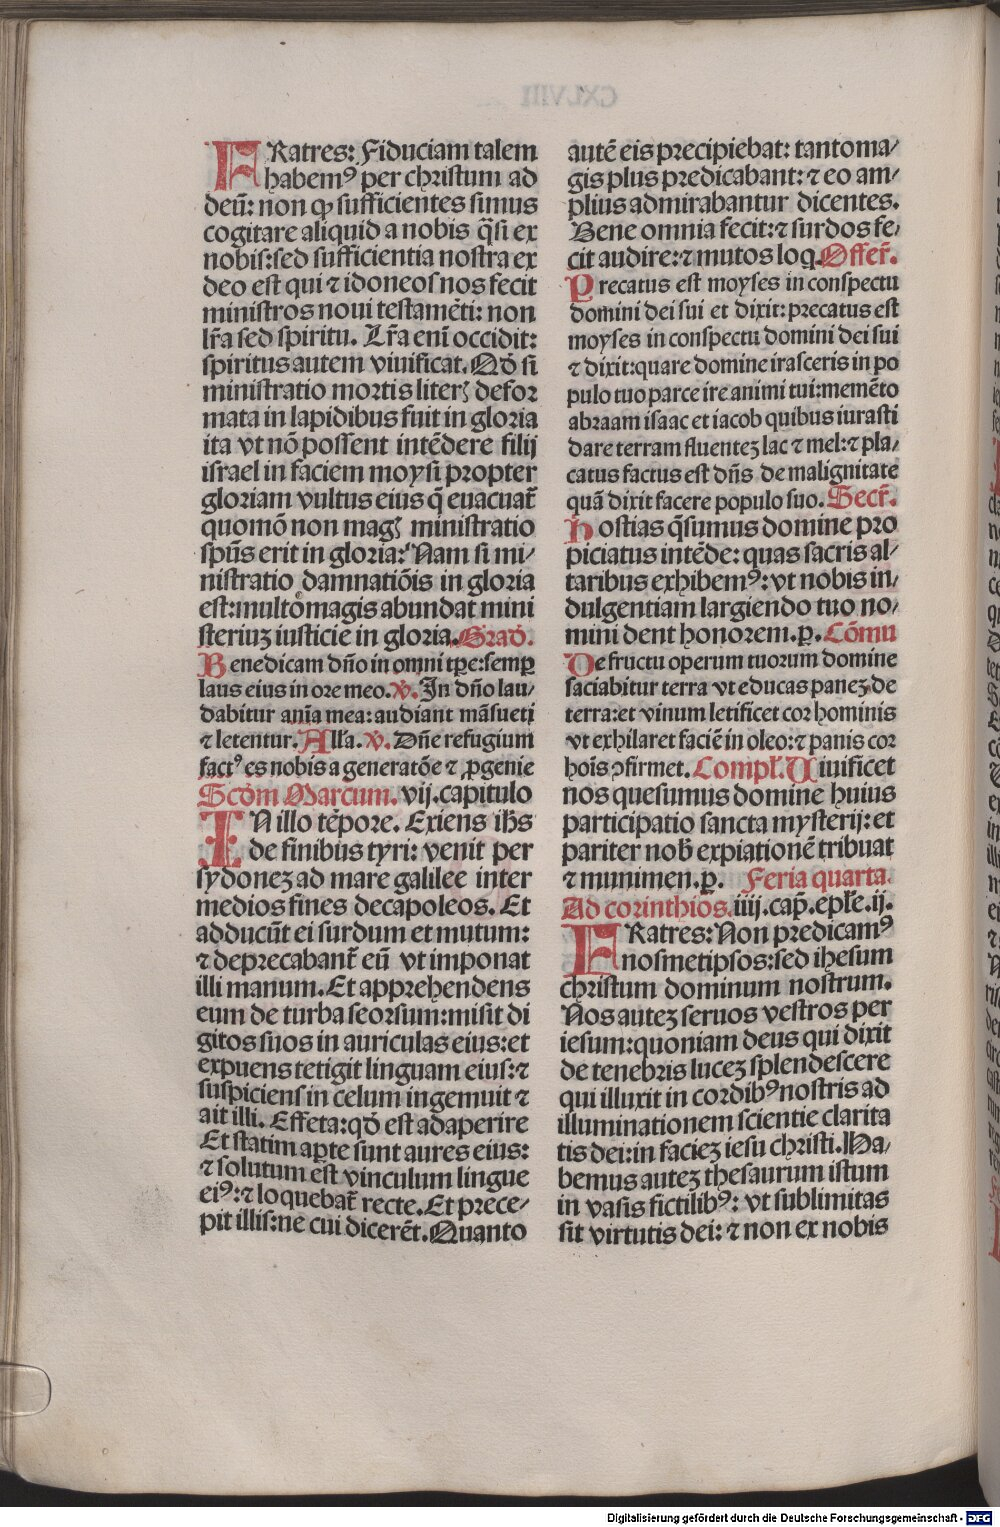 FRatres: Fiduciam talem
habemꝰ per christum ad
deū: non ꝙ sufficientes simus
cogitare aliquid a nobis q̄si ex
nobis: sed sufficientia nostra ex
deo est qui ⁊ idoneos nos fecit
ministros noui testamēti: non
lr̄a sed spiritu. Lr̄a eni occidit:
spiritus autem viuificat. Qd̓ si
ministratio mortis literꝭ defor
mata in lapidibus fuit in gloria
ita vt nō possent intēdere filij
israel in faciem moysi propter
gloriam vultus eius q̄ euacuat̄
quomō non magꝭ ministratio
spūs erit in gloria: Nam si mi⸗
nistratio damnatiōis in gloria
est: multomagis abundat mini
steriuꝫ iusticie in gloria. Grad̓.
Benedicam dn̄o in omni tꝑe: semꝑ
laus eius in ore meo. v̓. In dn̄o lau⸗
dabitur anīa mea: audiant māsueti
⁊ letentur. All̓a. v̓. Dn̄e refugium
factꝰ es nobis a generatōe ⁊ ꝓgenie
Scd̓m Marcum. vij. capitulo
IN illo tēpore. Exiens ih̄s
de finibus tyri: venit per
sydoneꝫ ad mare galilee inter
medios fines decapoleos. Et
adducūt ei surdum et mutum:
⁊ deprecabant̄ eū vt imponat
illi manum. Et apprehendens
eum de turba seorsum: misit di
gitos suos in auriculas eius: et
expuens tetigit linguam eius: ⁊
suspiciens in celum ingemuit ⁊
ait illi. Effeta: qd̓ est adaperire
Et statim aꝑte sunt aures eius:
⁊ solutum est vinculum lingue
eiꝰ: ⁊ loquebat̄ recte. Et prece⸗
pit illis: ne cui dicerēt. Quanto
autē eis precipiebat: tantoma⸗
gis plus predicabant: ⁊ eo am⸗
plius admirabantur dicentes.
Bene omnia fecit: ⁊ surdos fe⸗
cit audire: ⁊ mutos loq. Offer̄.
Precatus est moyses in conspectu
domini dei sui et dixit: precatus est
moyses in conspectu domini dei sui
⁊ dixit: quare domine irasceris in po
pulo tuo parce ire animi tui: memēto
abraam isaac et iacob quibus iurasti
dare terram fluenteꝫ lac ⁊ mel: ⁊ pla⸗
catus factus est dn̄s de malignitate
quā dixit facere populo suo. Secr̄.
Hostias q̄sumus domine pro
piciatus intēde: quas sacris al⸗
taribus exhibemꝰ: vt nobis in⸗
dulgentiam largiendo tuo no⸗
mini dent honorem. ꝑ. Cōmu
De fructu operum tuorum domine
saciabitur terra vt educas paneꝫ de
terra: et vinum letificet cor hominis
vt exhilaret faciē in oleo: ⁊ panis cor
hoīs ꝯfirmet. Compl̓. Uiuificet
nos quesumus domine huius
participatio sancta mysterij: et
pariter nob̓ expiationē tribuat
⁊ munimen. ꝑ. Feria quarta.
Ad corinthios. iiij. cap̄. epl̓e. ij.
FRatres: Non predicamꝰ
nosmetipsos: sed ihesum
christum dominum nostrum.
Nos auteꝫ seruos vestros per
iesum: quoniam deus qui dixit
de tenebris luceꝫ splendescere
qui illuxit in cordibꝰ nostris ad
illuminationem scientie clarita
tis dei: in facieꝫ iesu christi. Ha⸗
bemus auteꝫ thesaurum istum
in vasis fictilibꝰ: vt sublimitas
sit virtutis dei: ⁊ non ex nobis
Digitalisierung gefördert durch die Deutsche Forschungsgemeinschaft - DFG